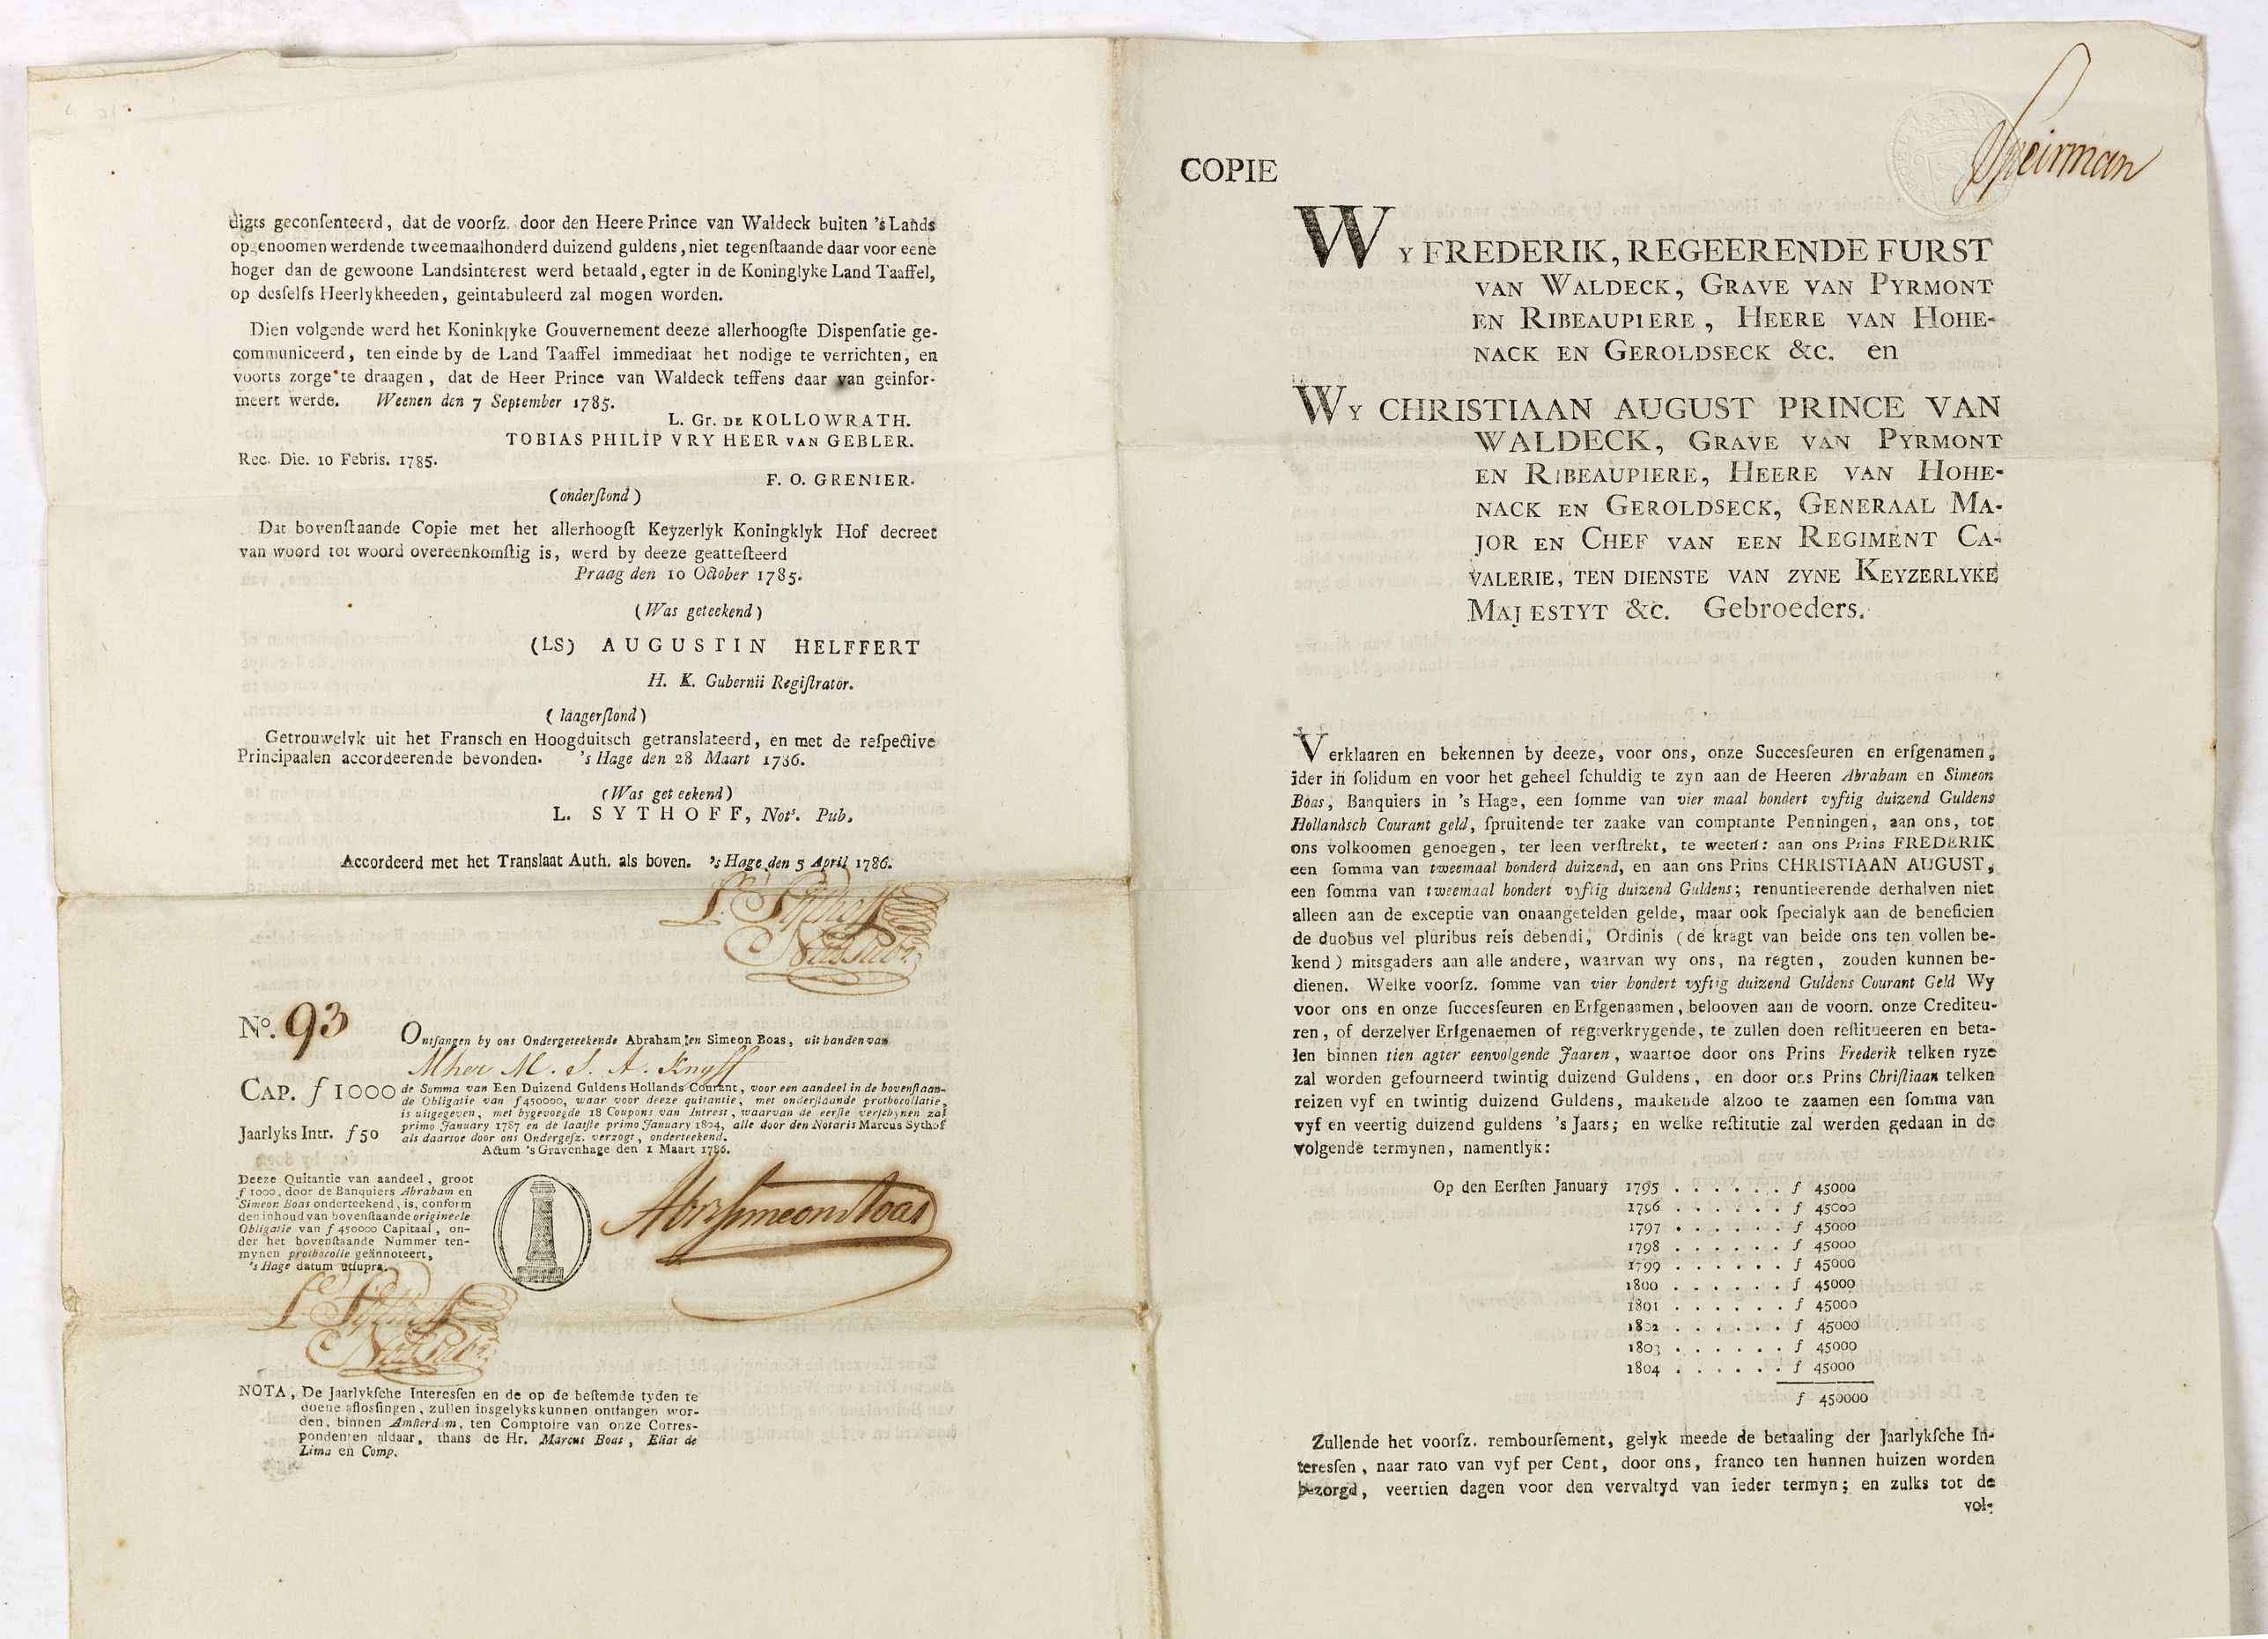 digts geconſenteerd, dat de voorſz. door den Heere Prince van Waldeck buiten 's Lands
opgenoomen werdende tweemaalhonderd duizend guldens, niet tegenſtaande daar voor eene
hoger dan de gewoone Landsinterest werd betaald, egter in de Koninglyke Land Taaffel,
op desſelfs Heerlykheeden, geintabuleerd zal mogen worden.
Dien volgende werd het Koninklyke Gouvernement deeze allerhoogſte Dispenſatie ge-
communiceerd, ten einde by de Land Taaffel immediaat het nodige te verrichten, en
voorts zorge te draagen, dat de Heer Prince van Waldeck teffens daar van geinfor-
meert werde. Weenen den 7 September 1785.
L. Gr. DE KOLLOWRATH.
TOBIAS PHILIP VRY HEER VAN GEBLER.
Rec. Die. 10 Febris. 1785.
F. O. GRENIER.
(onderſtond)
Dat bovenſtaande Copie met het allerhoogſt Keyzerlyk Koningklyk Hof decreet
van woord tot woord overeenkomſtig is, werd by deeze geatteſteerd
Praag den 10 October 1785.
(Was geteekend)
(LS) AUGUSTIN HELFFERT
H. K. Gubernii Regiſtrator.
(laagerſtond)
Getrouwelyk uit het Fransch en Hoogduitsch getranslateerd, en met de reſpective
Principaalen accordeerende bevonden. 's Hage den 28 Maart 1786.
(Was get eekend)
L. SYTHOFF, Not⁵. Pub.
Accordeerd met het Translaat Auth. als boven. 's Hage den 5 April 1786.
L. Sythoff
Not. Pub.
Nº. 93
Ontfangen by ons Ondergeteekende Abraham en Simeon Boas, uit handen van
Mher M. S. A. Knyff
CAP. ƒ 1000
de Somma van Een Duizend Guldens Hollands Courant, voor een aandeel in de bovenſtaan-
de Obligatie van ƒ450000, waar voor deeze quitantie, met onderſtaande prothocollatie,
is uitgegeven, met bygevoegde 18 Coupons van Intrest, waarvan de eerſte verſchynen zal
primo January 1787 en de laatſte primo January 1804, alle door den Notaris Marcus Sythof
Jaarlyks Intr. ƒ50
als daartoe door ons Ondergeſz. verzogt, onderteekend.
Actum 's Gravenhage den 1 Maart 1786.
Deeze Quitantie van aandeel, groot
ƒ 1000, door de Banquiers Abraham en
Simeon Boas onderteekend, is, conform
den inhoud van bovenſtaande origineele
Obligatie van ƒ 450000 Capitaal, on-
der het bovenſtaande Nummer ten-
mynen prothocolle geännoteert,
's Hage datum utſupra.
Abr. Simeon Boas
L. Sythoff
Not. Pub.
NOTA, De Jaarlykſche Interesſen en de op de beſtemde tyden te
doene aflosſingen, zullen insgelyks kunnen ontfangen wor-
den, binnen Amſterdam, ten Comptoire van onze Corres-
pondenten aldaar, thans de Hr. Marcus Boas, Elias de
Lima en Comp.
Speirman
COPIE
WY FREDERIK, REGEERENDE FURST
VAN WALDECK, GRAVE VAN PYRMONT
EN RIBEAUPIERE, HEERE VAN HOHE-
NACK EN GEROLDSECK &c. en
WY CHRISTIAAN AUGUST PRINCE VAN
WALDECK, GRAVE VAN PYRMONT
EN RIBEAUPIERE, HEERE VAN HOHE-
NACK EN GEROLDSECK, GENERAAL MA-
JOR EN CHEF VAN EEN REGIMENT CA-
VALERIE, TEN DIENSTE VAN ZYNE KEYZERLYKE
MAJESTYT &c. Gebroeders.
Verklaaren en bekennen by deeze, voor ons, onze Succesſeuren en erfgenamen,
ider in ſolidum en voor het geheel ſchuldig te zyn aan de Heeren Abraham en Simeon
Boas, Banquiers in 's Hage, een ſomme van vier maal hondert vyftig duizend Guldens
Hollandsch Courant geld, ſpruitende ter zaake van comptante Penningen, aan ons, tot
ons volkoomen genoegen, ter leen verſtrekt, te weeten: aan ons Prins FREDERIK
een ſomma van tweemaal honderd duizend, en aan ons Prins CHRISTIAAN AUGUST,
een ſomma van tweemaal hondert vyftig duizend Guldens; renuntieerende derhalven niet
alleen aan de exceptie van onaangetelden gelde, maar ook ſpecialyk aan de beneficien
de duobus vel pluribus reis debendi, Ordinis (de kragt van beide ons ten vollen be-
kend) mitsgaders aan alle andere, waarvan wy ons, na regten, zouden kunnen be-
dienen. Welke voorſz. ſomme van vier hondert vyftig duizend Guldens Courant Geld Wy
voor ons en onze ſuccesſeuren en Erfgenaamen, belooven aan de voorn. onze Crediteu-
ren, of derzelver Erfgenaemen of regtverkrygende, te zullen doen reſtitueeren en beta-
len binnen tien agter eenvolgende Jaaren, waartoe door ons Prins Frederik telken ryze
zal worden gefourneerd twintig duizend Guldens, en door ons Prins Chriſtiaan telken
reizen vyf en twintig duizend Guldens, maakende alzoo te zaamen een ſomma van
vyf en veertig duizend guldens 's Jaars; en welke reſtitutie zal werden gedaan in de
volgende termynen, namentlyk:
Op den Eerſten January 1795 . . . . . . ƒ 45000
1796 . . . . . . ƒ 45000
1797 . . . . . . ƒ 45000
1798 . . . . . . ƒ 45000
1799 . . . . . . ƒ 45000
1800 . . . . . . ƒ 45000
1801 . . . . . . ƒ 45000
1802 . . . . . . ƒ 45000
1803 . . . . . . ƒ 45000
1804 . . . . . . ƒ 45000
ƒ 450000
Zullende het voorſz. rembourſement, gelyk meede de betaaling der Jaarlykſche In-
teresſen, naar rato van vyf per Cent, door ons, franco ten hunnen huizen worden
bezorgd, veertien dagen voor den vervaltyd van ieder termyn; en zulks tot de
vol-